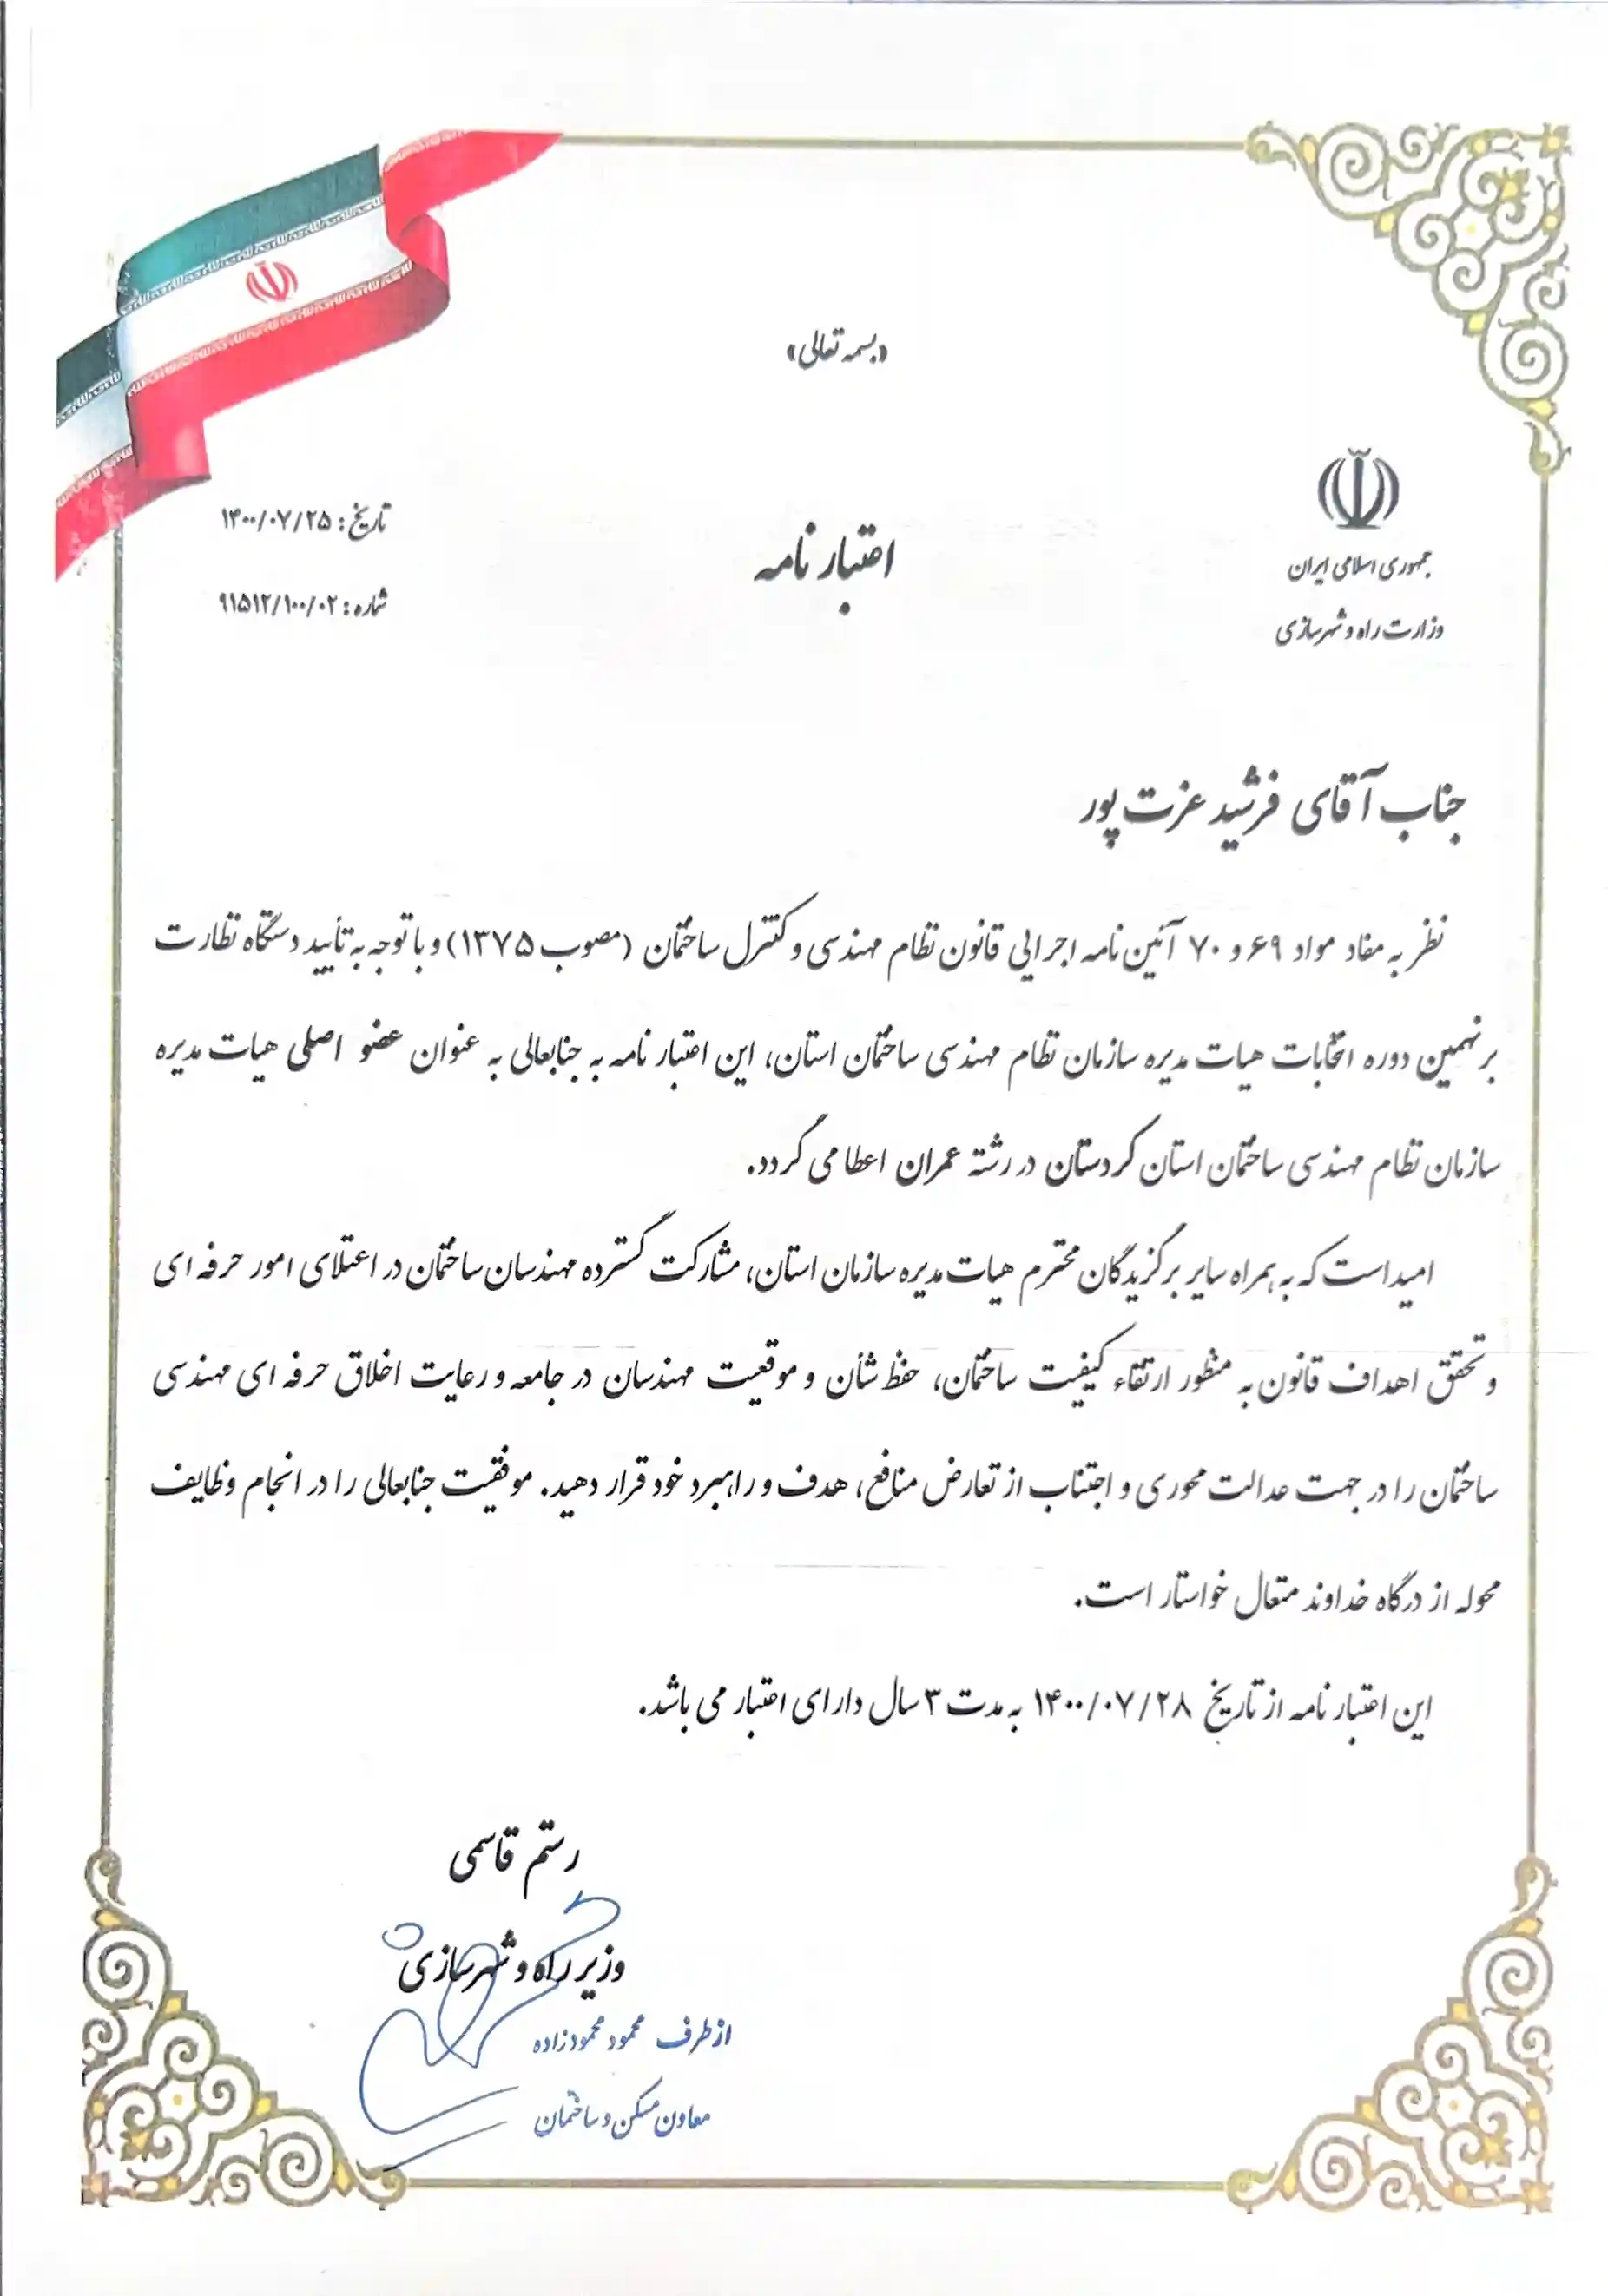 «بسمه تعالی»
جمهوری اسلامی ایران
وزارت راه و شهرسازی
اعتبار نامه
تاریخ: ۱۴۰۰/۰۷/۲۵
شماره: ۹۱۵۱۲/۱۰۰/۰۲
جناب آقای فرشید عزت پور
نظر به مفاد مواد ۶۹ و ۷۰ آئین نامه اجرایی قانون نظام مهندسی و کنترل ساختمان (مصوب ۱۳۷۵) و با توجه به تأیید دستگاه نظارت
بر نهمین دوره انتخابات هیات مدیره سازمان نظام مهندسی ساختمان استان، این اعتبار نامه به جنابعالی به عنوان عضو اصلی هیات مدیره
سازمان نظام مهندسی ساختمان استان کردستان در رشته عمران اعطا می گردد.
امید است که به همراه سایر برگزیدگان محترم هیات مدیره سازمان استان، مشارکت گسترده مهندسان ساختمان در اعتلای امور حرفه ای
و تحقق اهداف قانون به منظور ارتقاء کیفیت ساختمان، حفظ شأن و موقعیت مهندسان در جامعه و رعایت اخلاق حرفه ای مهندسی
ساختمان را در جهت عدالت محوری و اجتناب از تعارض منافع، هدف و راهبرد خود قرار دهید. موفقیت جنابعالی را در انجام وظایف
محوله از درگاه خداوند متعال خواستار است.
این اعتبار نامه از تاریخ ۱۴۰۰/۰۷/۲۸ به مدت ۳ سال دارای اعتبار می باشد.
رستم قاسمی
وزیر راه و شهرسازی
از طرف محمود محمودزاده
معاون مسکن و ساختمان